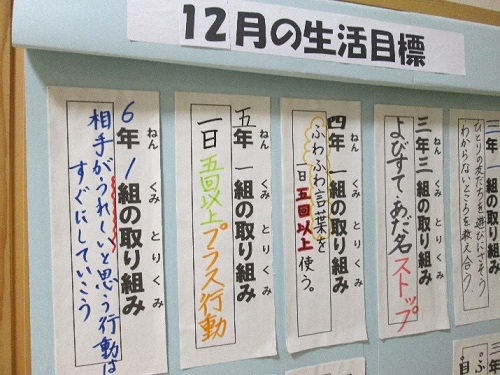 12月の生活目標
三年 一組の取り組み
ひとりの友だちを遊びにさそう
わからないところを教え合う。
三年三組の取り組み
ねん くみ とりくみ
よびすて・あだ名ストップ
四年 一組の取り組み
ねん くみ とりくみ
ふわふわ言葉を
一日五回以上使う。
五年 一組の取り組み
ねん くみ とりくみ
一日五回以上プラス行動
6年 1組の取り組み
ねん くみ とりくみ
相手がうれしいと思う行動は
すぐにしていこう